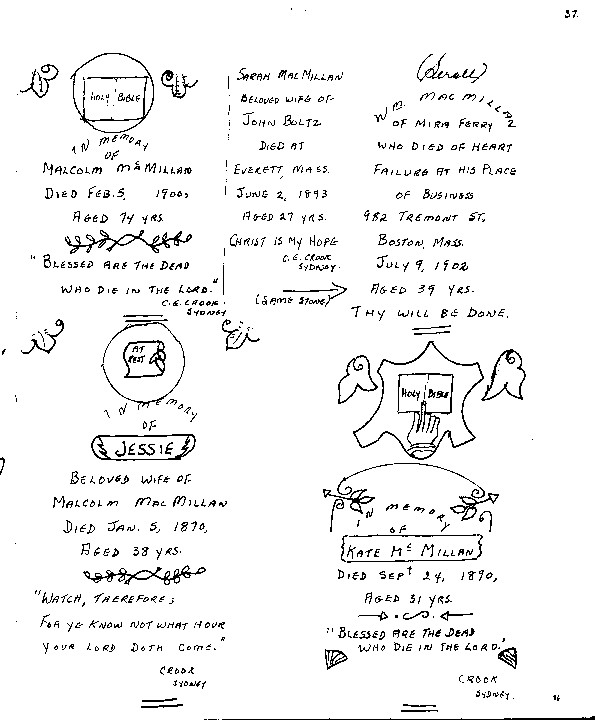 37.
HOLY BIBLE
IN MEMORY
OF
MALCOLM McMILLAN
DIED FEB. 5, 1900,
AGED 74 YRS.
"BLESSED ARE THE DEAD
WHO DIE IN THE LORD."
C.E. CROOK
SYDNEY
SARAH MACMILLAN
BELOVED WIFE OF
JOHN BOLTZ
DIED AT
EVERETT, MASS.
JUNE 2, 1893
AGED 27 YRS.
CHRIST IS MY HOPE
C.E. CROOK
SYDNEY.
(SAME STONE)
(Scroll)
WM. MACMILLAN
OF MIRA FERRY
WHO DIED OF HEART
FAILURE AT HIS PLACE
OF BUSINESS
982 TREMONT ST.
BOSTON, MASS.
JULY 9, 1902
AGED 39 YRS.
THY WILL BE DONE.
AT
REST
IN MEMORY
OF
JESSIE
BELOVED WIFE OF
MALCOLM MACMILLAN
DIED JAN. 5, 1870,
AGED 38 YRS.
"WATCH, THEREFORE;
FOR YE KNOW NOT WHAT HOUR
YOUR LORD DOTH COME."
CROOK
SYDNEY
HOLY BIBLE
IN MEMORY
OF
KATE Mc MILLAN
DIED SEPT 24, 1890,
AGED 31 YRS.
"BLESSED ARE THE DEAD
WHO DIE IN THE LORD."
CROOK
SYDNEY.